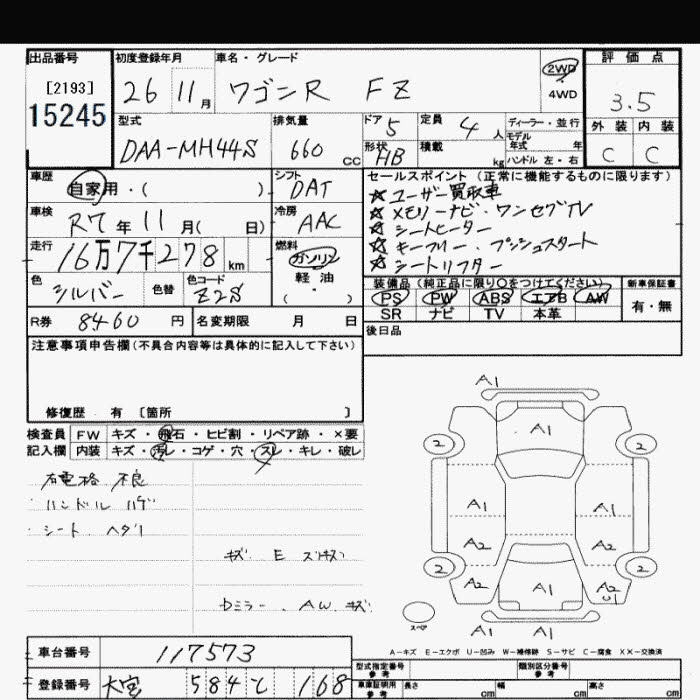 出品番号
[2193]
15245
初度登録年月
26 11月
車名・グレード
ワゴンR FZ
2WD
4WD
評価点
3.5
外装 内装
C C
型式
DAA-MH44S
排気量
660 cc
ドア 5
形状 HB
定員 4 人
積載 kg
ディーラー・並行
モデル
年式 年
ハンドル 左・右
車歴
自家用・( )
シフト
DAT
車検
R7年11月( 日)
冷房
AAC
走行
16万7千278 km
燃料
ガソリン
軽油
( ・ )
色
シルバー
色替
色コード
Z2S
R券 8460 円
名変期限 月 日
セールスポイント (正常に機能するものに限ります)
☆ユーザー買取車
☆メモリーナビ・ワンセグTV
☆シートヒーター
☆キーフリー・プッシュスタート
☆シートリフター
装備品 (純正品に限り○をつけてください)
PS PW ABS エアB AW
SR ナビ TV 本革
新車保証書
有・無
後日品
注意事項申告欄(不具合内容等は具体的に記入して下さい)
修復歴 有 〔箇所 〕
検査員
記入欄
FW キズ・飛石・ヒビ割・リペア跡・×要
内装 キズ・汚レ・コゲ・穴・スレ・キレ・破レ
不良
ハンドル ハゲ
シート ヘタリ
キズ E
Dミラー、AW キズ
A1
A1
2 2
A1 A1
A2 A2
2 2
A2 A1 A2
U1
A1 A1
スペア
A-キズ E-エクボ U-凹み W-補修跡 S-サビ C-腐食 XX-交換済
車台番号 117573
登録番号 大宮 584 168
型式指定番号
参考
類別区分番号
参考
車庫証明用
参考
長さ cm 幅 cm 高さ cm